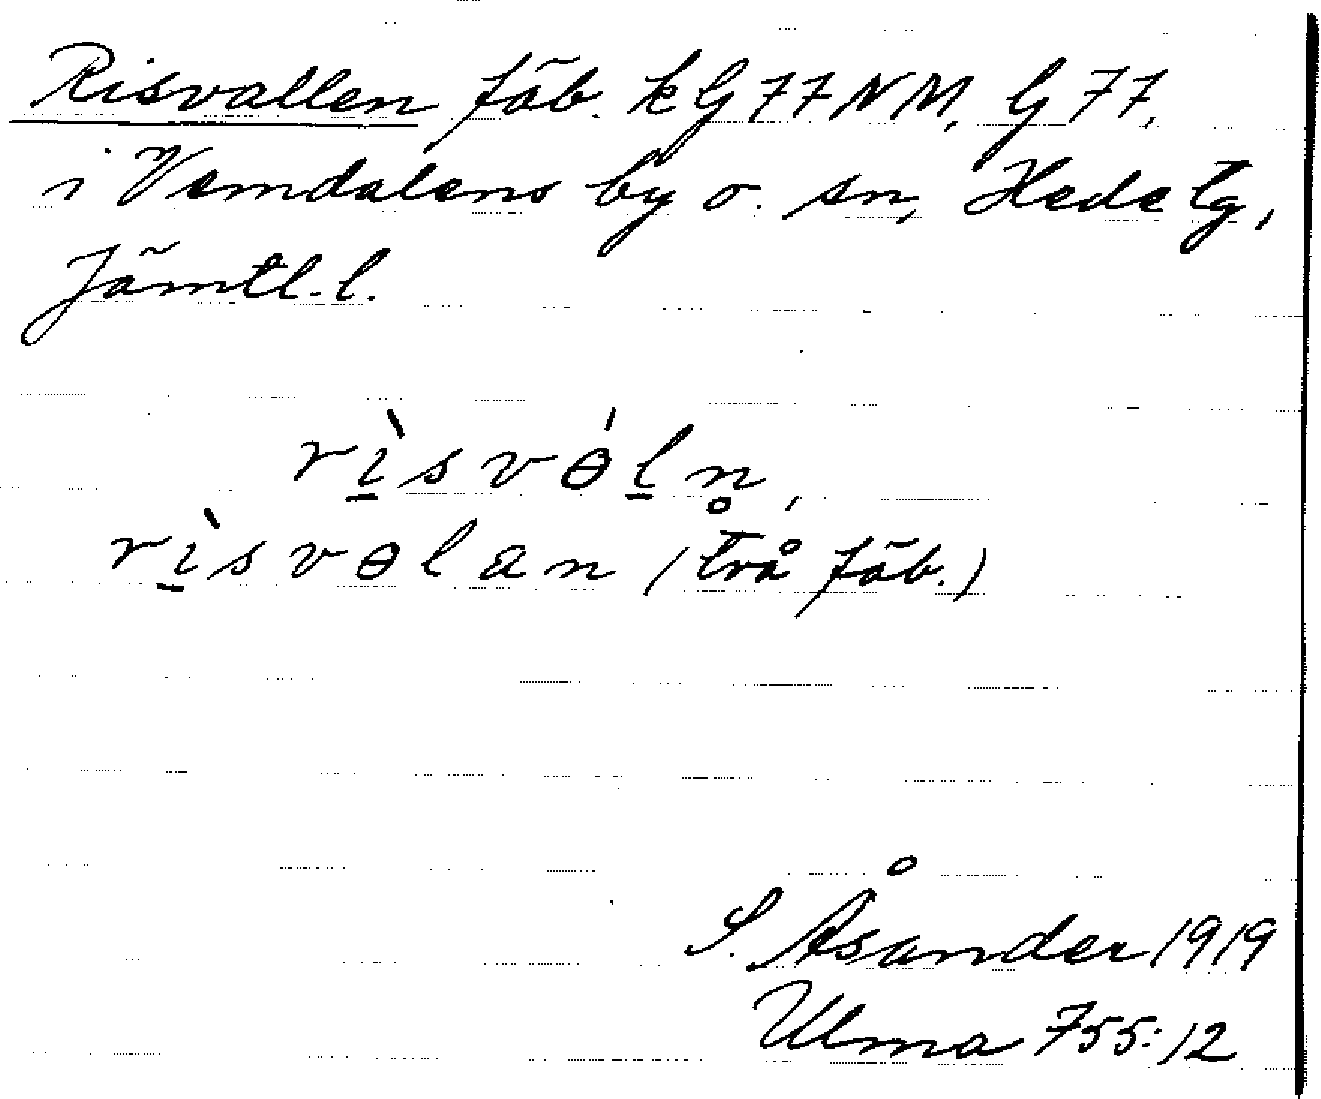 Risvallen fäb. kG77NM, G77,
i Vemdalens by o. sn, Hede tg,
Jämtl. l.
rı̲̀svɵ́l̲n̥,
rı̲̀svɵlan (två fäb.)
S. Åsander 1919
Ulma 755:12